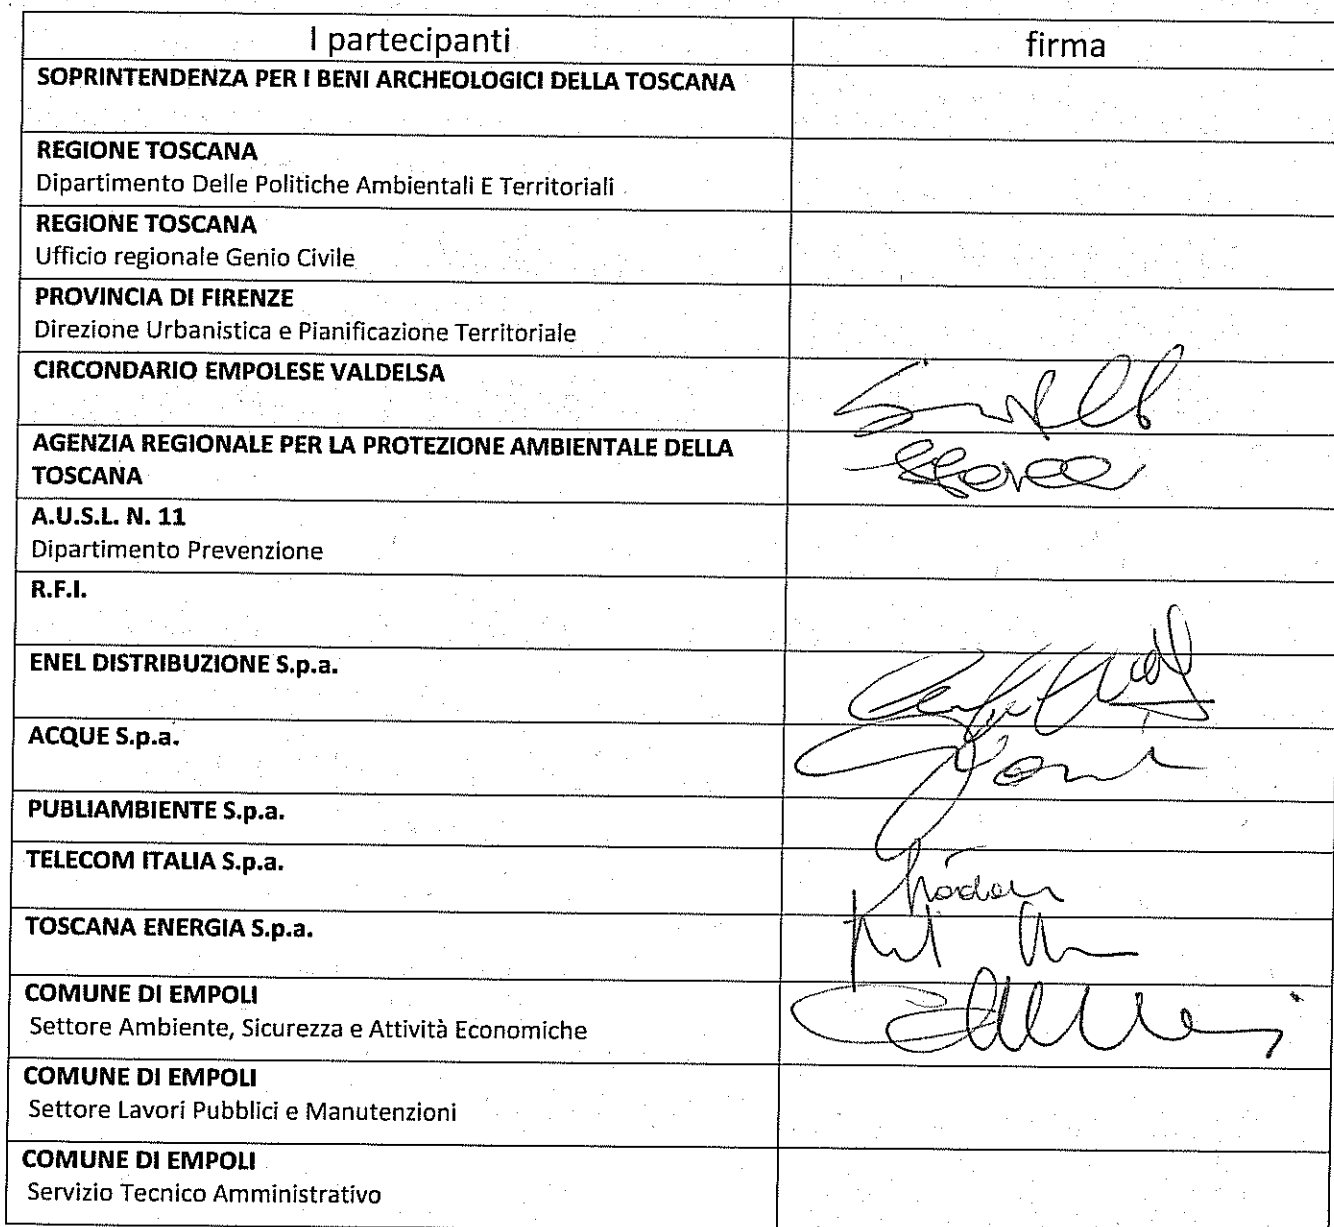 I partecipanti
firma
SOPRINTENDENZA PER I BENI ARCHEOLOGICI DELLA TOSCANA
REGIONE TOSCANA
Dipartimento Delle Politiche Ambientali E Territoriali
REGIONE TOSCANA
Ufficio regionale Genio Civile
PROVINCIA DI FIRENZE
Direzione Urbanistica e Pianificazione Territoriale
CIRCONDARIO EMPOLESE VALDELSA
AGENZIA REGIONALE PER LA PROTEZIONE AMBIENTALE DELLA
TOSCANA
A.U.S.L. N. 11
Dipartimento Prevenzione
R.F.I.
ENEL DISTRIBUZIONE S.p.a.
ACQUE S.p.a.
PUBLIAMBIENTE S.p.a.
TELECOM ITALIA S.p.a.
TOSCANA ENERGIA S.p.a.
COMUNE DI EMPOLI
Settore Ambiente, Sicurezza e Attività Economiche
COMUNE DI EMPOLI
Settore Lavori Pubblici e Manutenzioni
COMUNE DI EMPOLI
Servizio Tecnico Amministrativo